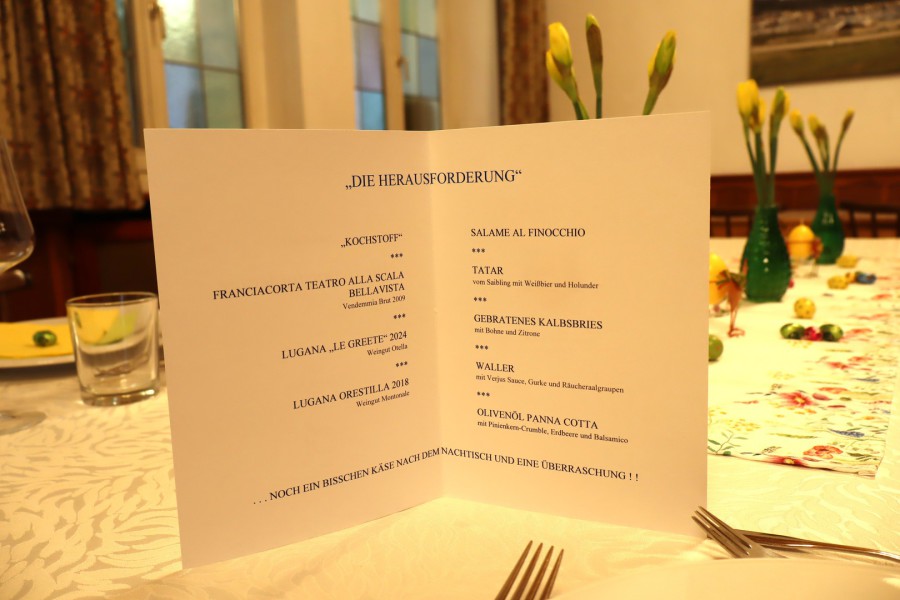 „DIE HERAUSFORDERUNG“
„KOCHSTOFF“
***
FRANCIACORTA TEATRO ALLA SCALA
BELLAVISTA
Vendemmia Brut 2009
***
LUGANA „LE GREETE“ 2024
Weingut Otella
***
LUGANA ORESTILLA 2018
Weingut Montonale
SALAME AL FINOCCHIO
***
TATAR
vom Saibling mit Weißbier und Holunder
***
GEBRATENES KALBSBRIES
mit Bohne und Zitrone
***
WALLER
mit Verjus Sauce, Gurke und Räucheraalgraupen
***
OLIVENÖL PANNA COTTA
mit Pinienkern-Crumble, Erdbeere und Balsamico
. . . NOCH EIN BISSCHEN KÄSE NACH DEM NACHTISCH UND EINE ÜBERRASCHUNG ! !